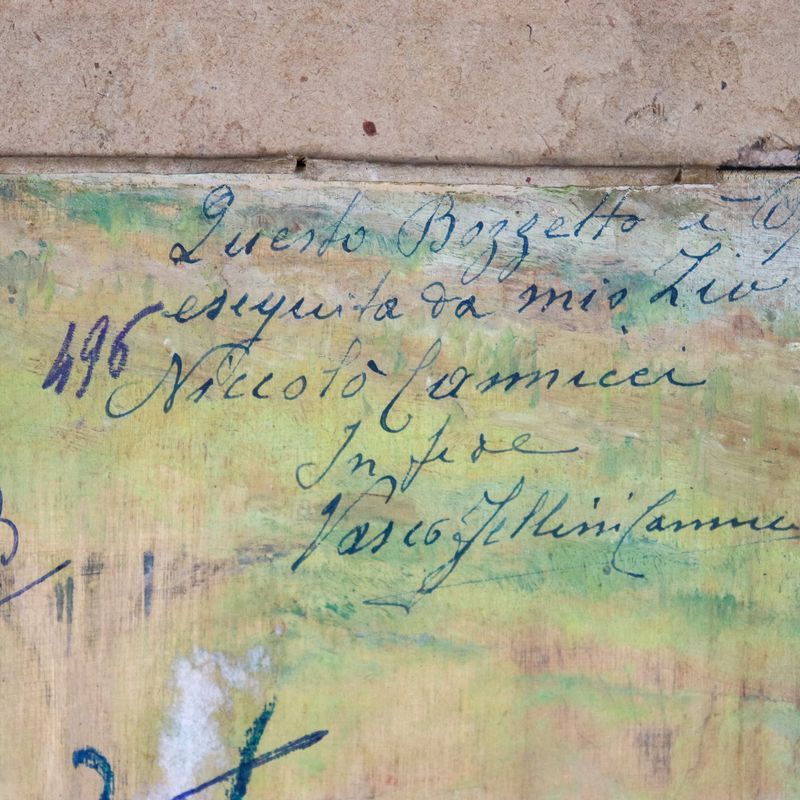 Questo Bozzetto è
eseguita da mio Zio
496
Niccolò Cannicci
In fede
Vasco Fellini Cannicc